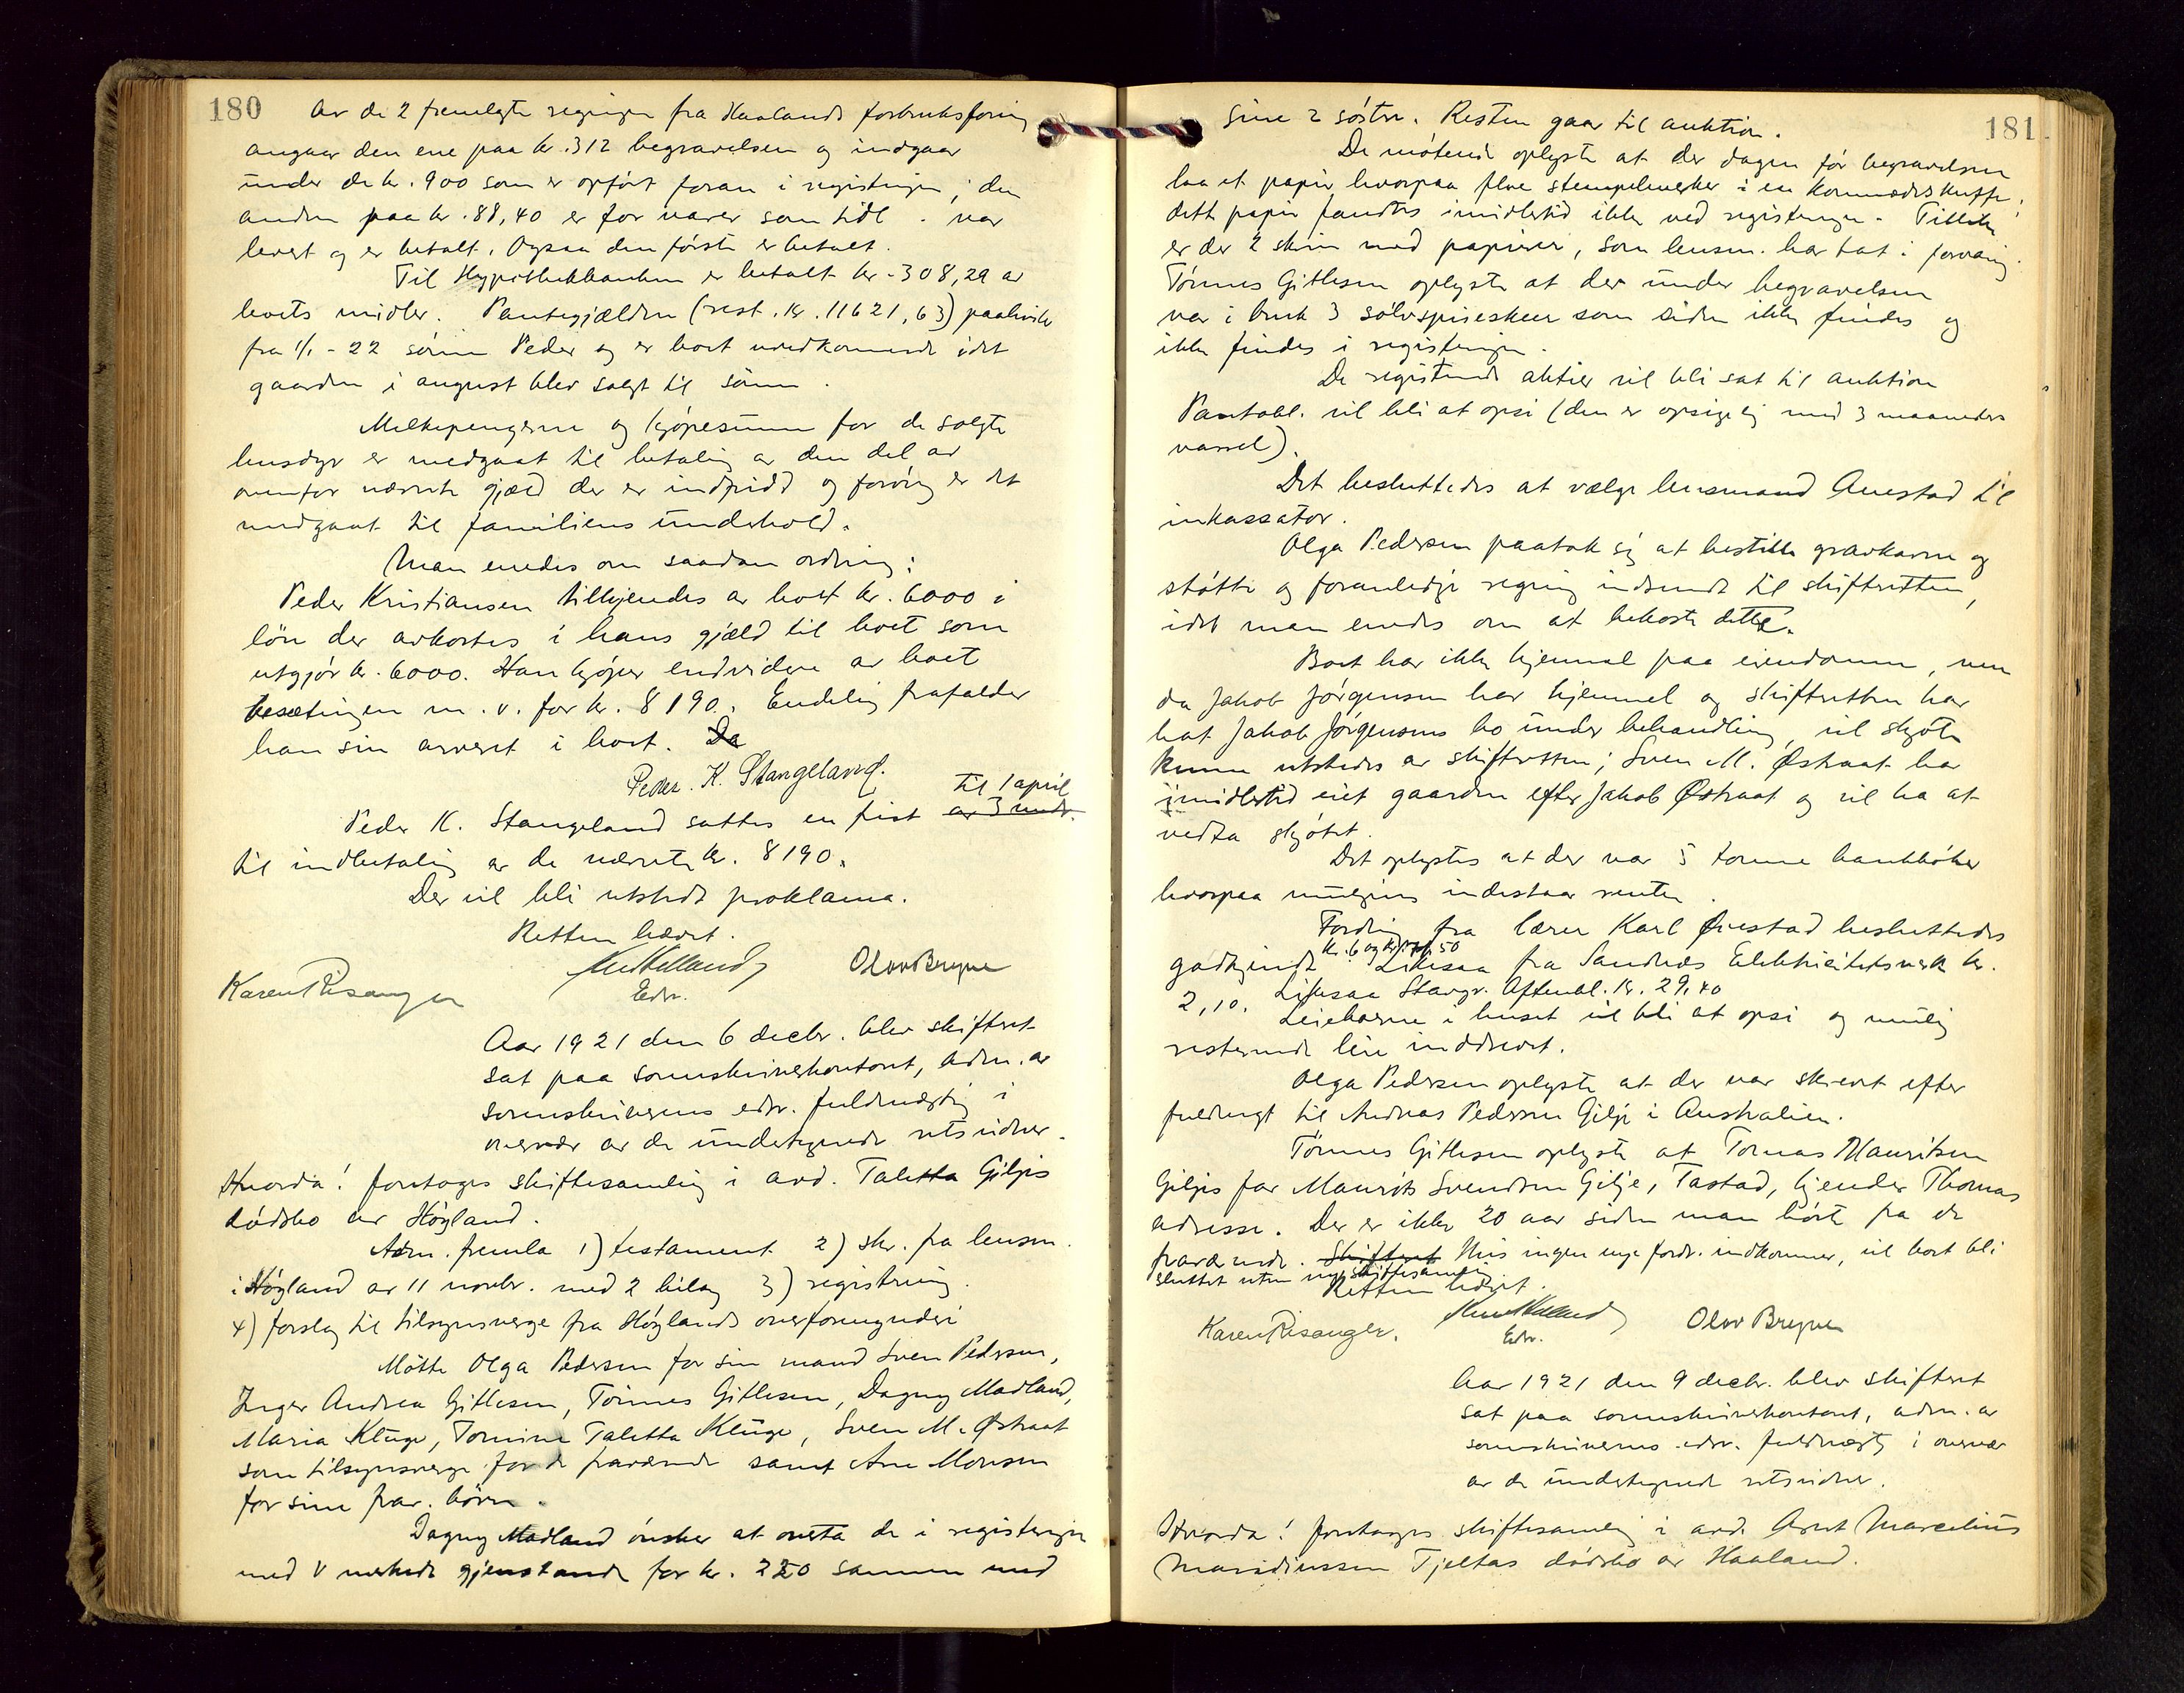 180
Av de 2 fremlagte regninger fra Haalands forbruksforening
angaar den ene paa kr. 312 begravelsen og indgaar
under de kr. 900 som er opført foran i registringen; den
anden paa kr. 88,40 er for varer som tidl. var
levert og er betalt. Ogsaa den første er betalt.
Til Hypothekbanken er betalt kr. 308,29 av
boets midler. Pantegjælden (rest. kr. 11621,63) paahviler
fra 1/1 - 22 sønnen Peder og er boet uvedkommende idet
gaarden i august blev solgt til sønnen.
Melkepengerne og kjøpesummen for de solgte
husdyr er medgaat til betaling av den del av
ovenfor nævnte gjæld der er indfridd og forøvrig er det
medgaat til familiens underhold.
Man enedes om saadan ordning:
Peder Kristiansen tilkjendes av boet kr. 6000 i
løn der avkortes i hans gjæld til boet som
utgjør kr. 6000. Han kjøper endvidere av boet
besætningen m. v. for kr. 8190. Endelig frafalder
han sin arveret i boet. Da
Peder. K. Stangeland.
til 1 april
Peder K. Stangeland sattes en frist av 3 mndr.
til indbetaling av de nævnte kr. 8190.
Der vil bli utstedt proklama.
Retten hævet.
Karen Risanger
Edsv.
Olav Bryne
Aar 1921 den 6 decbr. blev skifteret
sat paa sorenskriverkontoret, adm. av
sorenskriverens edsv. fuldmægtig i
overvær av de undertegnede retsvidner.
Hvorda! foretages skiftesamling i avd. Taletta Giljes
dødsbo av Høyland.
Adm. fremla 1) testament 2) skr. fra lensm.
i Høyland av 11 novbr. med 2 bilag 3) registrering.
4) forslag til tilsynsverge fra Høylands overformynderi
Møtte Olga Pedersen for sin mand Sven Pedersen,
Inger Andrea Gitlesen, Tønnes Gitlesen, Dagny Madland,
Maria Kluge, Tomine Taletta Kluge, Sven M. Østraat
som tilsynsverge for de fraværende samt Arne Monsen
for sine frav. børn.
Dagny Madland ønsker at overta de i registeringen
med V merkede gjenstande for kr. 220 sammen med
181
sine 2 søstre. Resten gaar til auktion.
De møtende oplyste at der dagen før begravelsen
laa et papir hvorpaa flere stempelmerker i en kommodeskuffe;
dette papir fandtes imidlertid ikke ved registeringen. Tillike
er der 2 skrin med papirer, som lensm. har tat i forvaring.
Tønnes Gitlesen oplyste at der under begravelsen
var i bruk 3 sølvspiseskeer som siden ikke findes og
ikke findes i registeringen.
De registrerede aktier vil bli sat til auktion
Pantobl. vil bli at opsi (den er opsigelig med 3 maaneders
varsel).
Det besluttedes at vælge lensmand Auestad til
inkassator.
Olga Pedersen paatok sig at bestille gravkarm og
støtte og foranledige regning indsendt til skifteretten,
idet man enedes om at bekoste dette.
Boet har ikke hjemmel paa eiendommen, men
da Jakob Jørgensen har hjemmel og skifteretten har
hat Jakob Jørgensens bo under behandling, vil skjøte
kunne utstedes av skifteretten; Sven M. Østraat har
imidlertid eiet gaarden efter Jakob Østraat og vil ha at
vedta skjøtet.
Det oplystes at der var 5 tomme bankbøker
hvorpaa muligens indestaar renter.
Fordring fra lærer Karl Øvestad besluttedes
godkjendt Likesaa fra Sandnes Elektricitetsverk kr.
2,10. Likesaa Stavgr. Aftenbl. kr. 29,40
Leieboerne i huset vil bli at opsi og mulig
resterende leie inddrevet.
Olga Pedersen oplyste at der var skrevet efter
fuldmagt til Andreas Pedersen Gilje i Australien.
Tønnes Gitlesen oplyste at Tomas Mauritsen
Giljes far Maurits Svendsen Gilje, Tastad, kjender Thomas
adresse. Der er ikke 20 aar siden man hørte fra de
fraværende. Skifteret Hvis ingen nye fordr. indkommer, vil boet bli
sluttet uten ny skiftesamling
Retten hævet.
Karen Risanger.
Edsv.
Olav Bryne
Aar 1921 den 9 decbr. blev skifteret
sat paa sorenskriverkontoret, adm. av
sorenskriverens edsv. fuldmægtig i overvær
av de undertegnede retsvidner.
Hvorda! foretages skiftesamling i avd. Arnt Marcelius
Tjeltas dødsbo av Haaland.